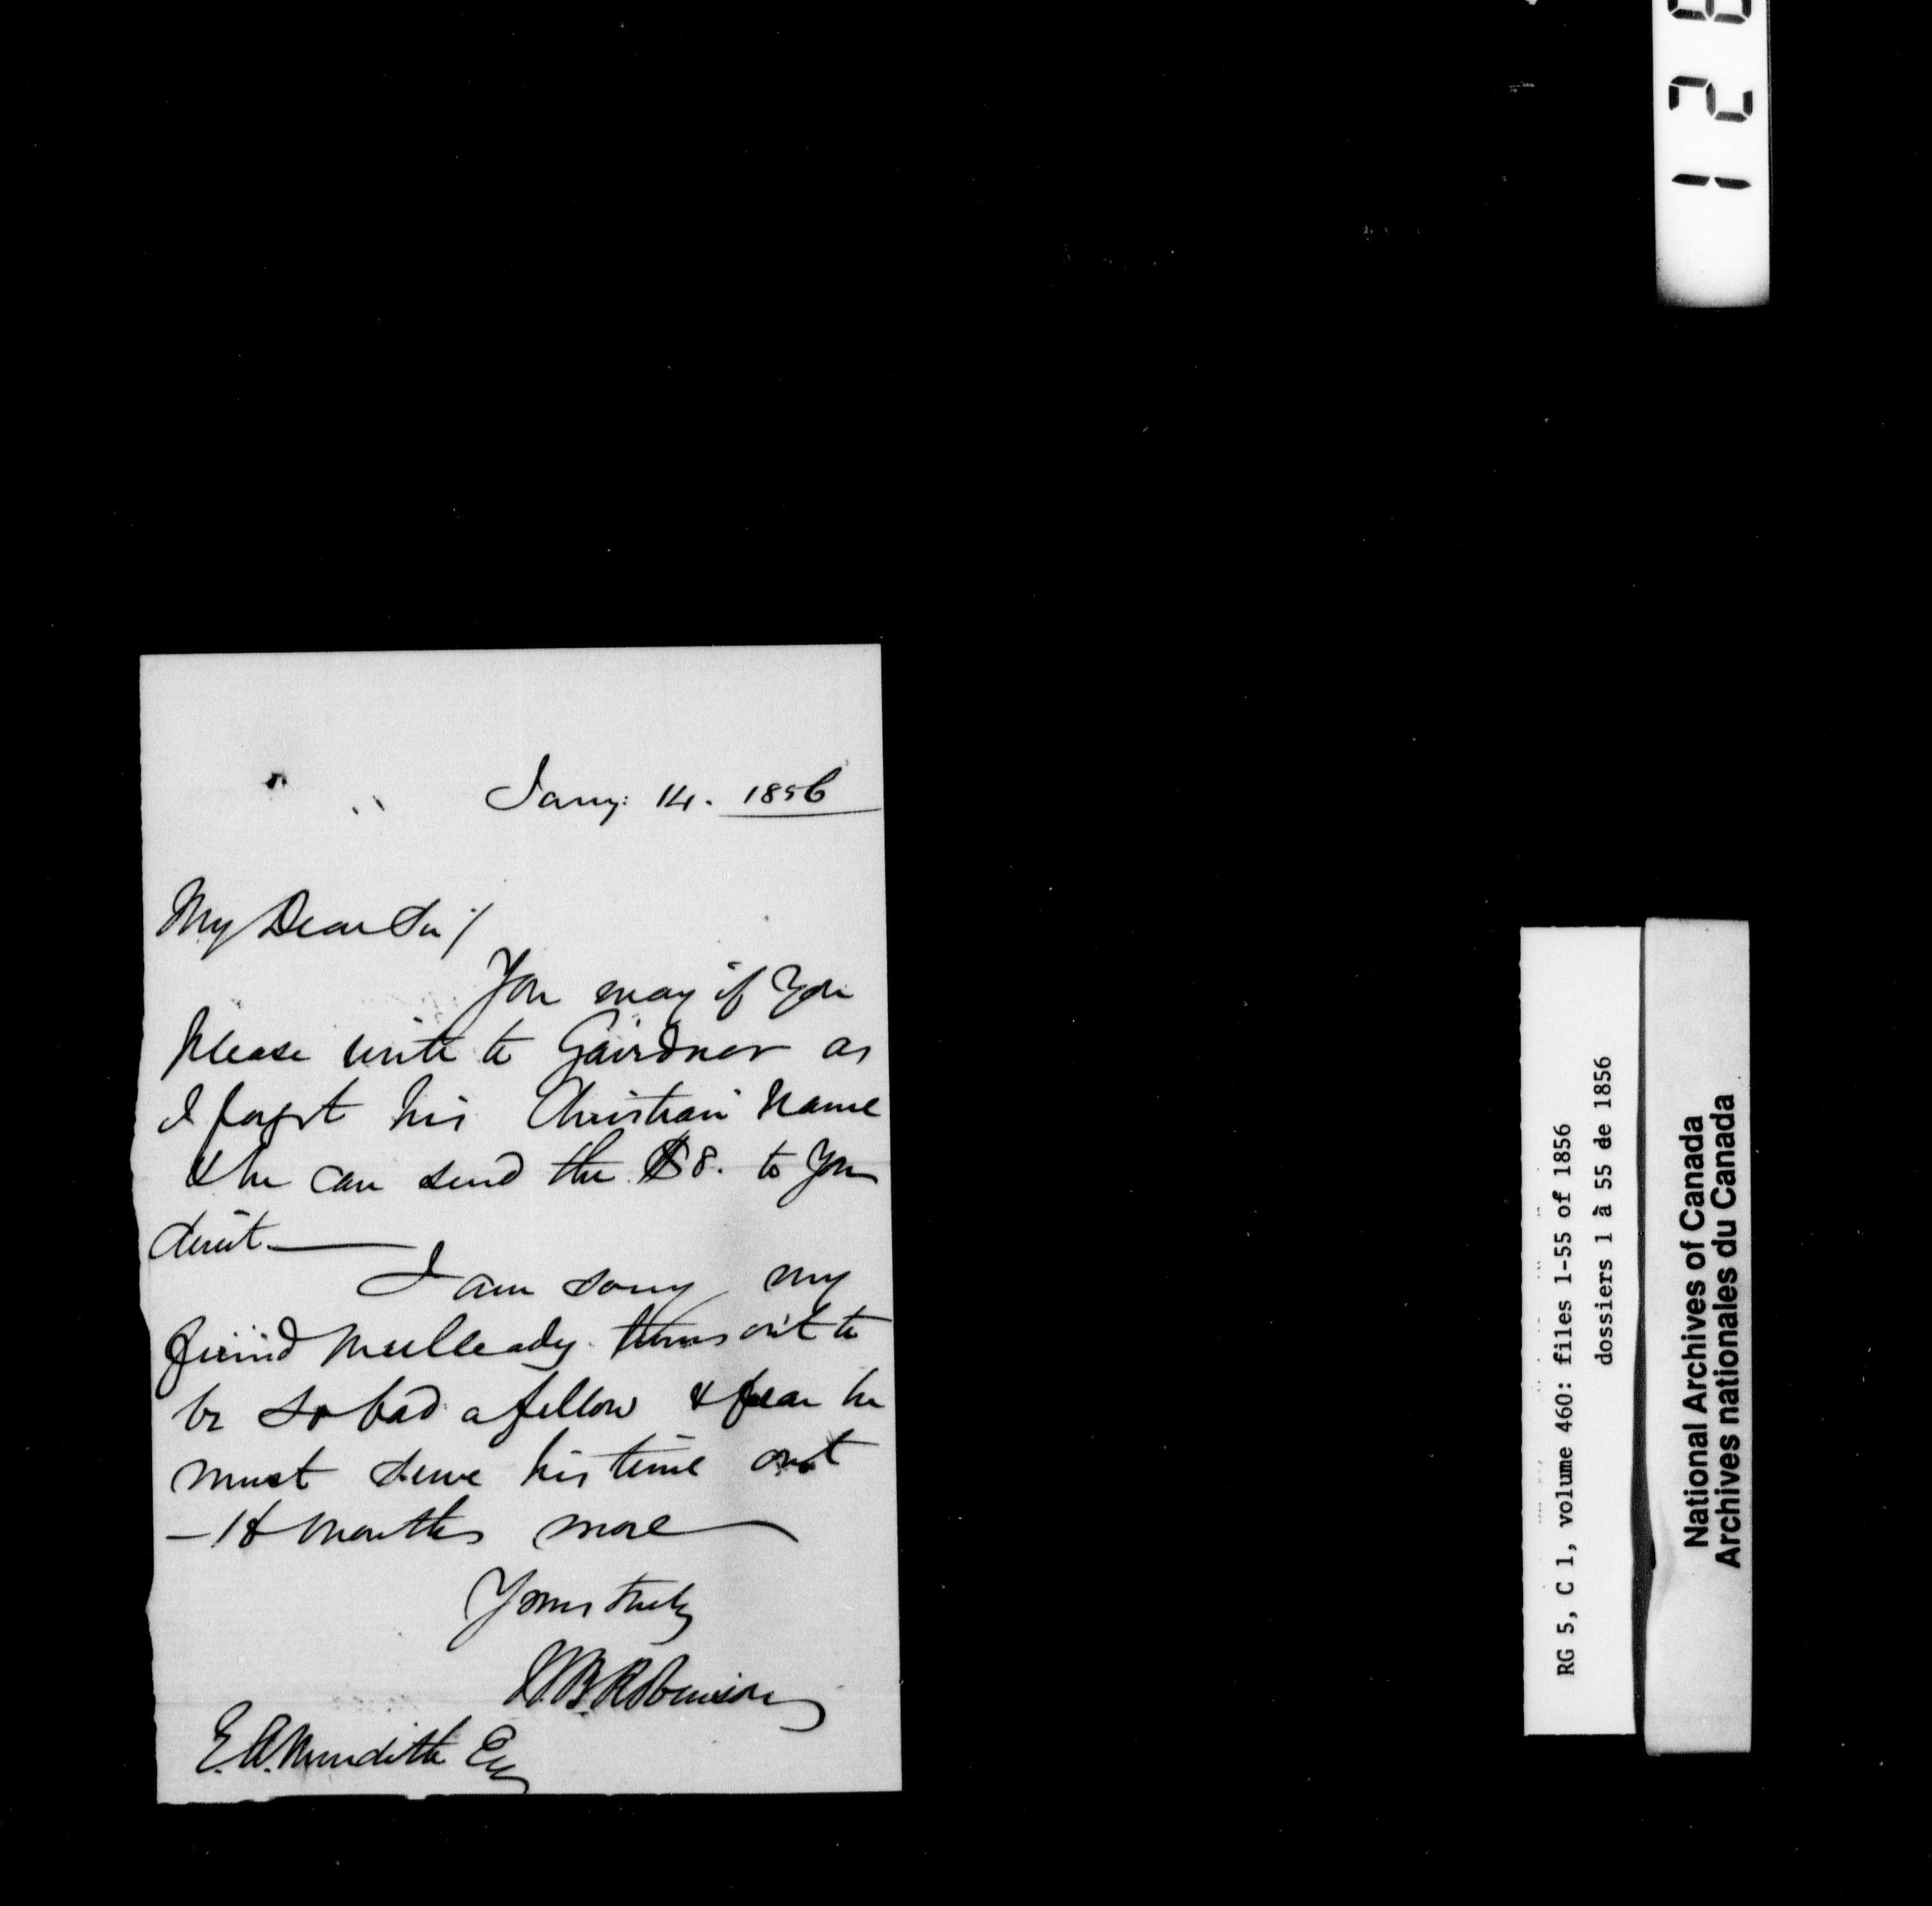 Jany: 14. 1856
My Dear Sir/
You may if you
please write to Gairdner as
I forget his Christian name
& he can send the $8. to you
direct.—
I am sorry my
friend Mulleady turns out to
be so bad a fellow & fear he
must serve his time out
— 18 months more —
Yours truly
W. B. Robinson
E. A. Meredith Esq
128
RG 5, C 1, volume 460: files 1-55 of 1856
dossiers 1 à 55 de 1856
National Archives of Canada
Archives nationales du Canada